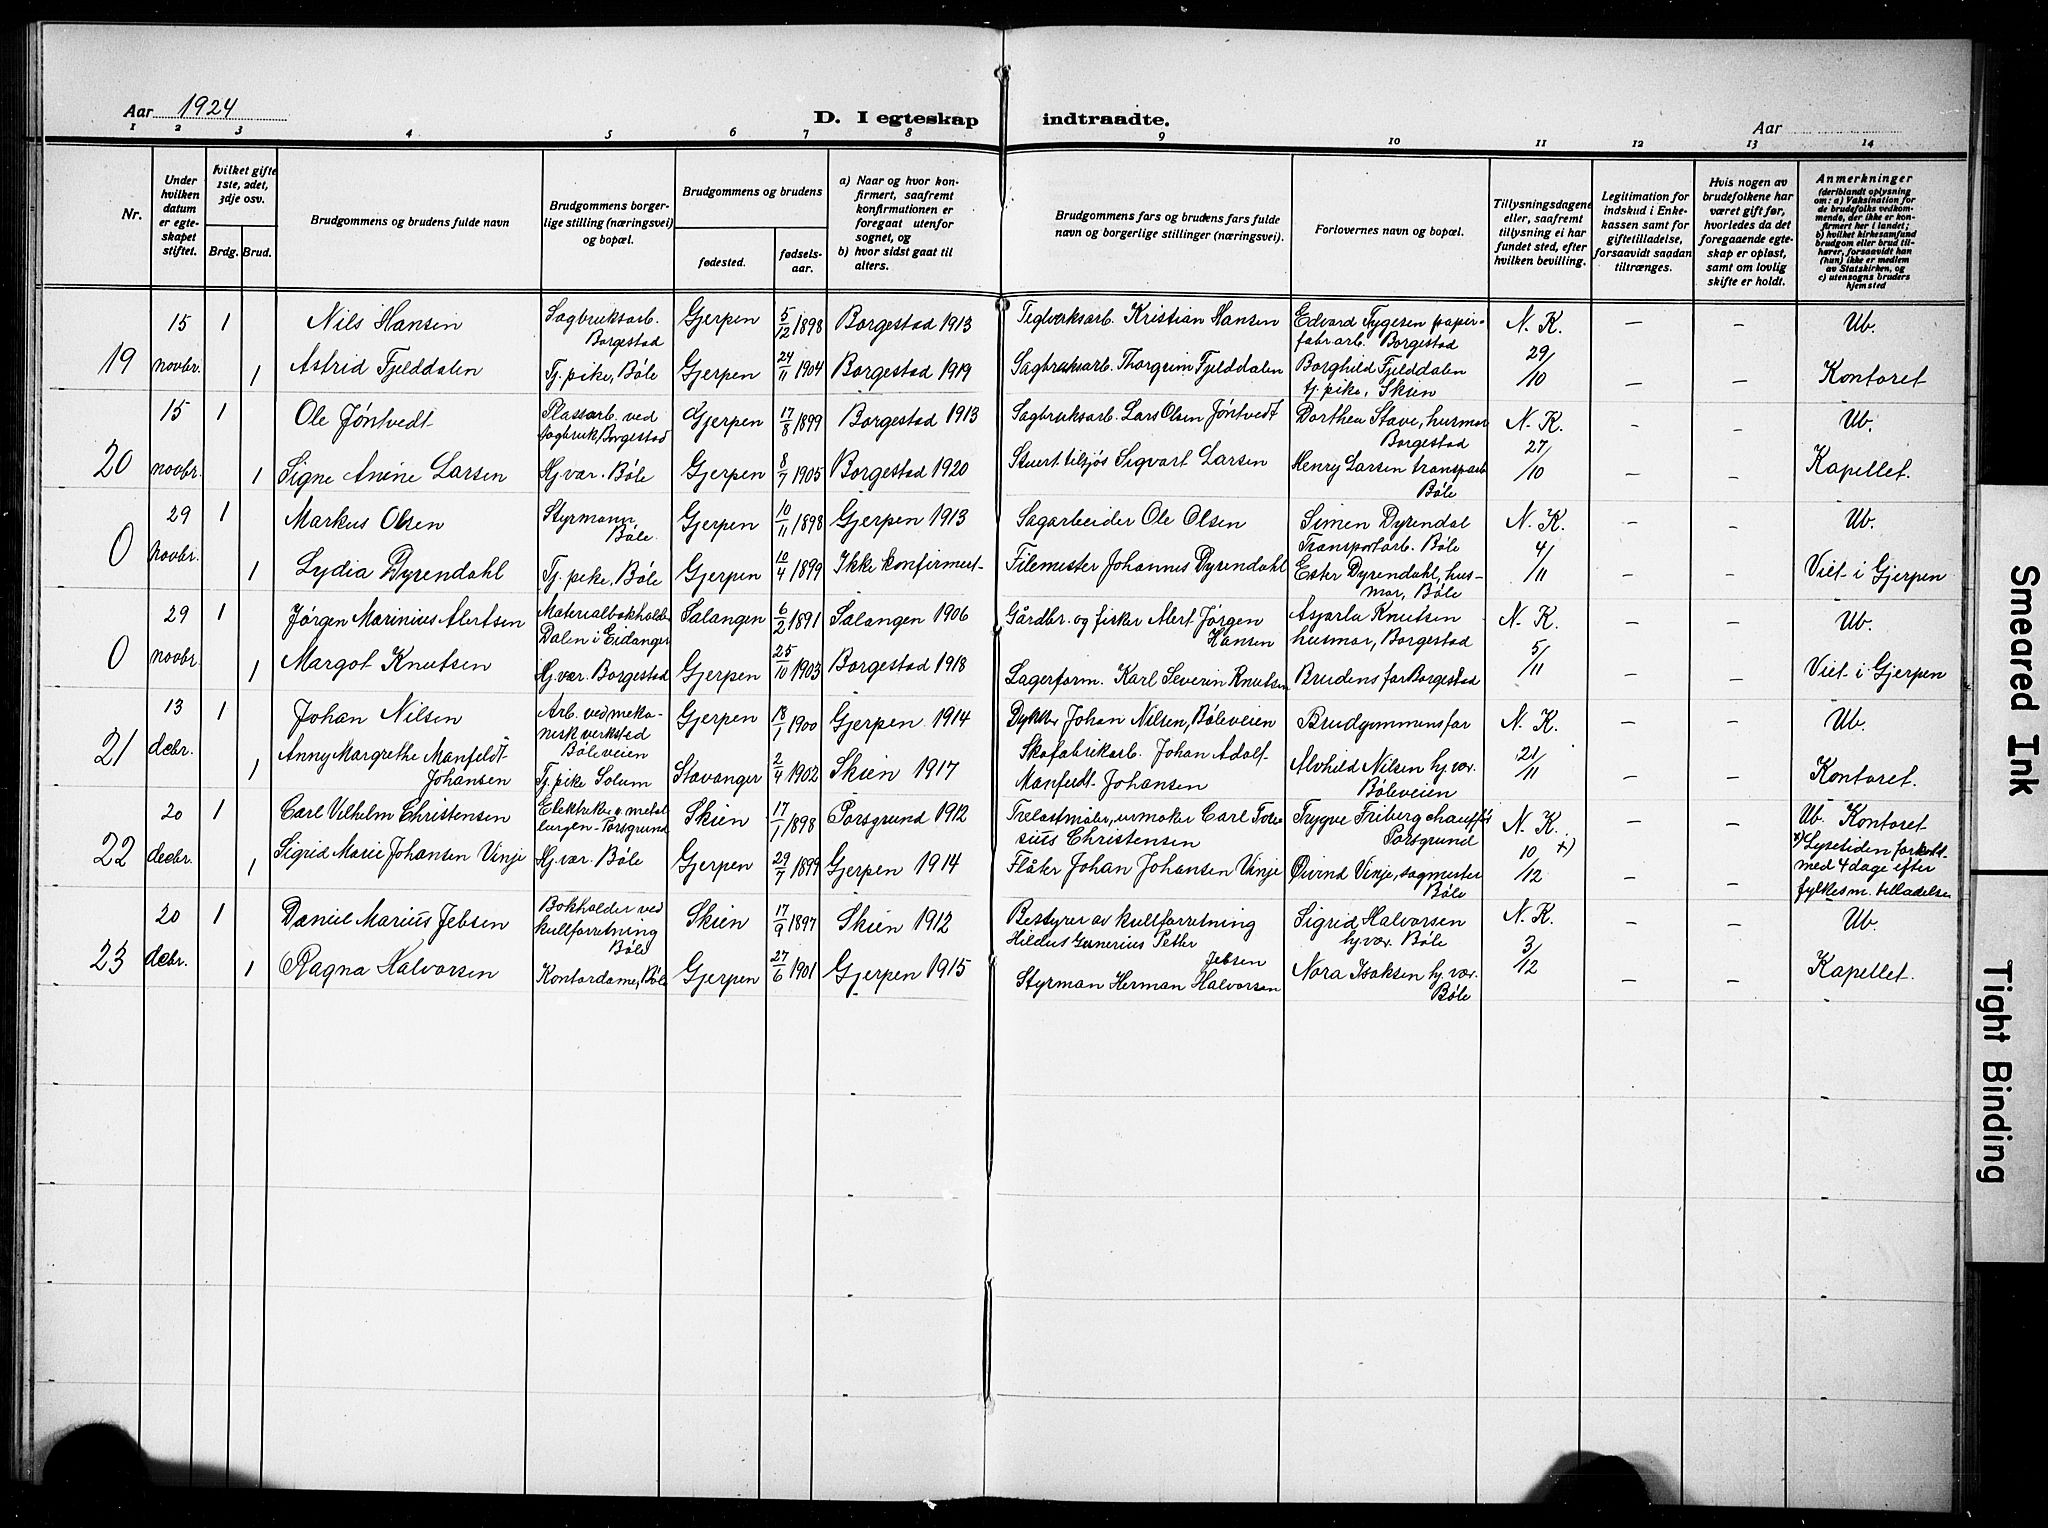 Aar 1924 D. I egteskap indtraadte. Aar
1 2 3 4 5 6 7 8 9 10 11 12 13 14
Nr.
Under hvilken datum er egteskapet stiftet.
hvilket gifte 1ste, 2det, 3dje osv.
Brdg. Brud.
Brudgommens og brudens fulde navn
Brudgommens borgerlige stilling (næringsvei) og bopæl.
Brudgommens og brudens
fødested.
fødselsaar.
a) Naar og hvor konfirmert, saafremt konfirmationen er foregaat utenfor sognet, og
b) hvor sidst gaat til alters.
Brudgommens fars og brudens fars fulde navn og borgerlige stillinger (næringsvei).
Forlovernes navn og bopæl.
Tillysningsdagene eller, saafremt tillysning ei har fundet sted, efter hvilken bevilling.
Legitimation for indskud i Enkekassen samt for giftetilladelse, forsaavidt saadan tiltrænges.
Hvis nogen av brudefolkene har været gift før, hvorledes da det foregaaende egteskap er opløst, samt om lovlig skifte er holdt.
Anmerkninger (deriblandt oplysning om: a) Vaksination for de brudefolks vedkommende, der ikke er konfirmert her i landet; b) hvilket kirkesamfund brudgom eller brud tilhører, forsaavidt han (hun) ikke er medlem av Statskirken, og c) utensogns bruders hjemsted
15 1 Nils Hansen Sagbruksarb. Borgestad Gjerpen 5/12 1898 Borgestad 1913 Teglverksarb. Kristian Hansen Edvard Tygesen papirfabr.arb. Borgestad N. K. — — Ub.
19 novbr. 1 Astrid Fjelddalen Tj. pike, Bøle Gjerpen 24/11 1904 Borgestad 1919 Sagbruksarb. Thorgrim Fjelddalen Borghild Fjelddalen tj. pike, Skien 29/10 — — Kontoret
15 1 Ole Jøntvedt Plassarb. ved sagbruk, Borgestad Gjerpen 17/8 1899 Borgestad 1913 Sagbruksarb. Lars Olsen Jøntvedt Dorthea Stave, husmor Borgestad N. K. — — Ub.
20 novbr. 1 Signe Anine Larsen Hj. vær. Bøle Gjerpen 8/7 1905 Borgestad 1920 Stuert tilsjøs Sigvart Larsen Henry Larsen transp.arb. Bøle 27/10 — — Kapellet.
29 1 Markus Olsen Styrmann, Bøle. Gjerpen 10/11 1898 Gjerpen 1913 Sagarbeider Ole Olsen Simen Dyrendal Transportarb. Bøle N. K. — — Ub.
0 novbr. 1 Lydia Dyrendahl Tj. pike, Bøle Gjerpen 10/4 1899 Ikke konfirmert Filemester Johannes Dyrendahl Ester Dyrendahl, husmor, Bøle 4/11 — — Viet i Gjerpen
29 1 Jørgen Marinius Alertsen Materialbokholder Dalen i Eidanger Salangen 6/2 1891 Salangen 1906 Gårdbr. og fisker Alert Jørgen Hansen Asjarla Knutsen husmor, Borgestad N. K. — — Ub.
0 novbr. 1 Margot Knutsen Hj. vær. Borgestad Gjerpen 25/10 1903 Borgestad 1918 Lagerform. Karl Severin Knutsen Brudens far Borgestad 5/11 — — Viet i Gjerpen
13 1 Johan Nilsen Arb. ved mekanisk verksted Bøleveien Gjerpen 18/1 1900 Gjerpen 1914 Dykker Johan Nilsen, Bøleveien Brudgommens far N. K. — — Ub.
21 debr. 1 Anny Margrethe Manfeldt Johansen Tj. pike Solum Stavanger 2/4 1902 Skien 1917 Skofabrikarb. Johan Adolf Manfeldt Johansen Alvhild Nilsen hj. vær. Bøleveien 21/11 — — Kontoret.
20 1 Carl Vilhelm Christensen Elektriker v metallurgen-Porsgrund Skien 17/1 1898 Porsgrund 1912 Trelastmåler, urmaker Carl Christensen Trygve Friberg chauffør Porsgrund N. K. — — Ub. Kontoret
22 decbr. 1 Sigrid Marie Johansen Vinje Hj. vær. Bøle Gjerpen 29/7 1899 Gjerpen 1914 Flåter Johan Johansen Vinje Øivind Vinje, sagmester Bøle 10/12 x) — — x) Lysetiden forkort. med 4 dage efter fylkesm. tilladelse
20 1 Daniel Marius Jebsen Bokholder ved kullforretning Bøle Skien 17/9 1897 Skien 1912 Bestyrer av kullforretning Hildus Gunerius Petter Jebsen Sigrid Halvorsen hj. vær. Bøle N. K. — — Ub.
23 debr. 1 Ragna Halvorsen Kontordame, Bøle Gjerpen 27/6 1901 Gjerpen 1915 Styrman Herman Halvorsen Nora Isaksen hj. vær. Bøle 3/12 — — Kapellet.
Smeared Ink
Tight Binding